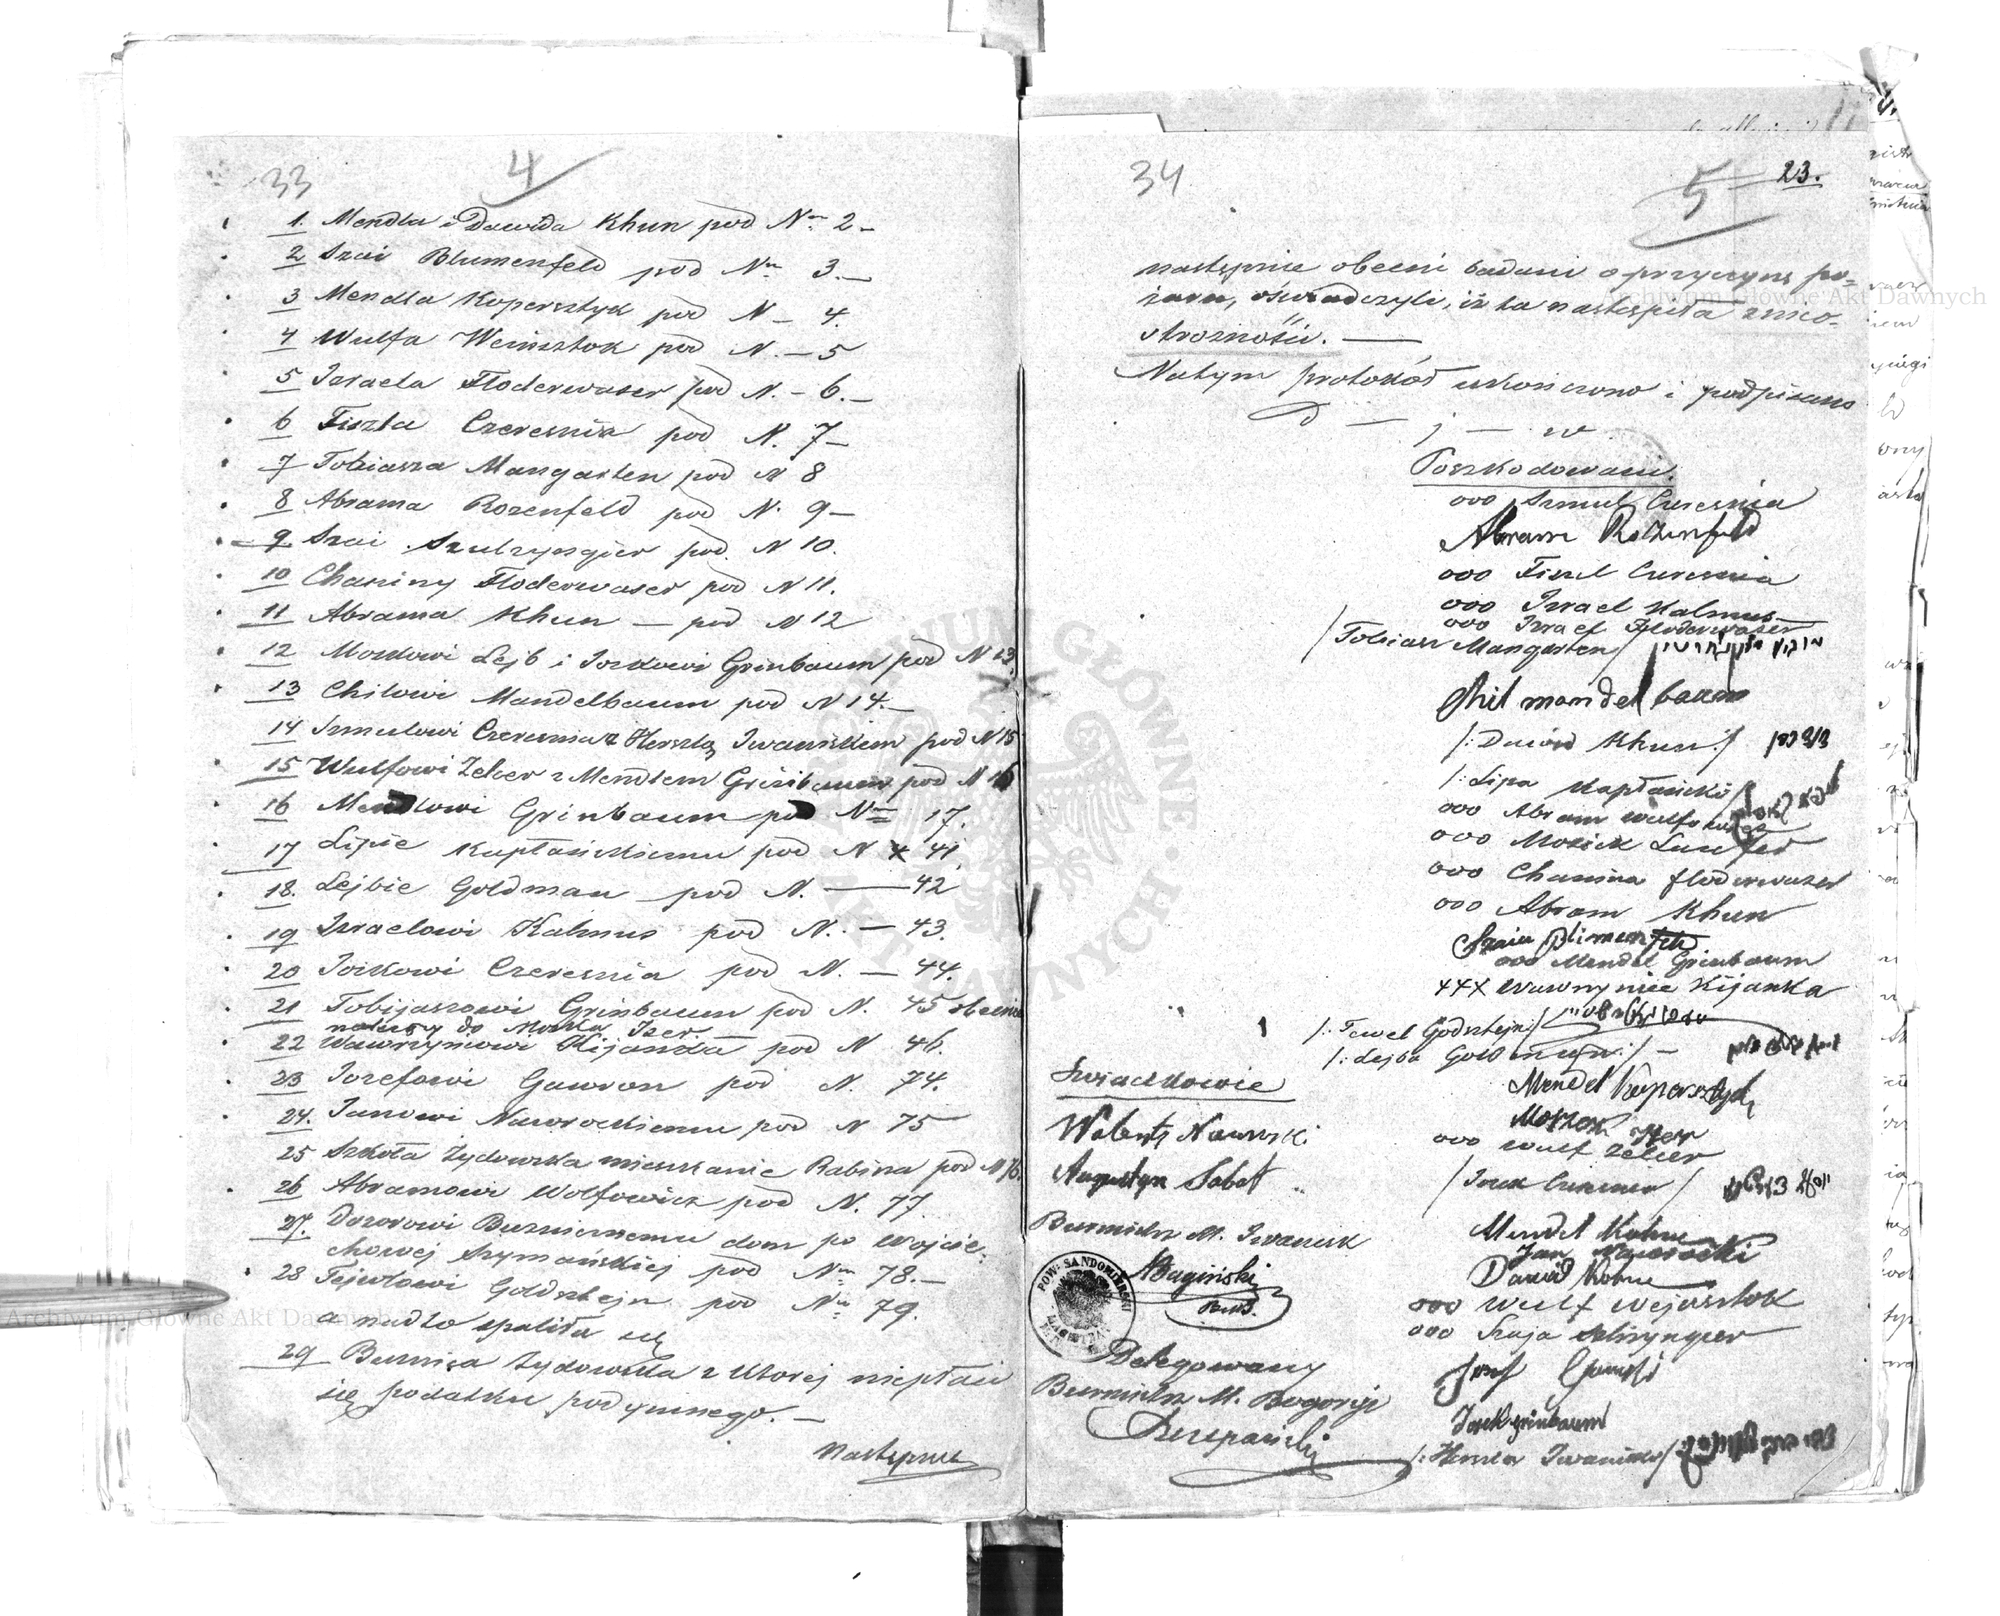 33
4
1. Mendla i Dawida Khun pod Nrm 2 –
2 Szai Blumenfeld pod Nrm 3. –
3 Mendla Kopersztyk pod N – 4.
4 Wulfa Weinsztok pod N. – 5
5 Izraela Floderwaser pod N. – 6. –
6 Fiszla Czeresnia pod N. 7 –
7 Tobiasza Mangarten pod N 8
8 Abrama Rozenfeld pod N. 9 –
9. Szai Szulzyngier pod. N 10.
10 Chaniny Floderwaser pod N 11.
11 Abrama Khun – pod N 12
12 Moszkowi Lejb i Joskowi Grinbaum pod N 13.
13 Chilowi Mandelbaum pod N 14. –
14 Szmulowi Czeresnia z Herszlą Iwańskiem pod N 15
15 Wulfowi Zelcer z Mendlem Grinbaum pod N 16
16 Mendlowi Grinbaum pod Nrm 17.
17 Lipie Kaplańskiemu pod N 41
18. Lejbie Goldman pod N. – 42
19 Izraelowi Kalmus pod N. – 43.
20 Joskowi Czeresnia pod N. – 44.
21 Tobijaszowi Grinbaum pod N. 45 obecnie
należy do Moszka Izer.
22 Wawrzynowi Kijanka pod N 46.
23 Jozefowi Gawron pod N. 74.
24. Janowi Nawrockiemu pod N 75
25 Szkoła Żydowska mieszkanie Rabina pod N 76.
26 Abramowi Wolfowicz pod N. 77.
27. Dozorowi Bużniczemu dom po Wojcie-
chowej Szymańskiej pod Nrm 78. –
28 Fejwlowi Goldsztejn pod Nrm 79.
a nadto spaliła się
29 Bużnica Żydowska z ktorej niepłaci
się podatku podymnego. –
Następnie
34
5
23.
następnie obecni badani o przyczynę po-
żaru, oświadczyli, iż ta nastąpiła z nieo-
strożności. –
Natym protokół ukończono i podpisano
D – j – w
Poszkodowani.
ooo Szmul Czeresnia
Abram Rozenfeld
ooo Fiszel Czeresnia
ooo Izrael Kalmus
ooo Izrael Floderwaser
/Tobiasz Mangarten/
Chil mandel baum
/: Dawid Khun :/
/: Lipa Kaplański
ooo Abram Wulfowicz
ooo Mosiek Laufer
ooo Chanina floderwaser
ooo Abram Khun
Szaia Blimenfeld
ooo Mendel Grinbaum
+++ Wawrzyniec Kijanka
/: Fawel Godsztejn :/
/: Lejba Goldman :/ –
Mendel Kopersztych
Moszek Izer
ooo Wulf Zelcer
/Josek Czeresnia/
Mendel Kohne
Jan Nawrocki
Dawid Kohne
ooo Wulf Wejnsztok
ooo Szaja Szlizyngier
Josek grinbaum
/: Herszla Iwański/
Swiadkowie
Walenty Nawrocki
Augustyn Sabat
Burmistrz M. Iwanisk
ABagiński
POW: SANDOMIERSKI
Delegowany
Burmistrz M. Bogoryi
Szczepański
Archiwum Główne Akt Dawnych
Archiwum Główne Akt Dawnych
ARCHIWUM GŁÓWNE AKT DAWNYCH